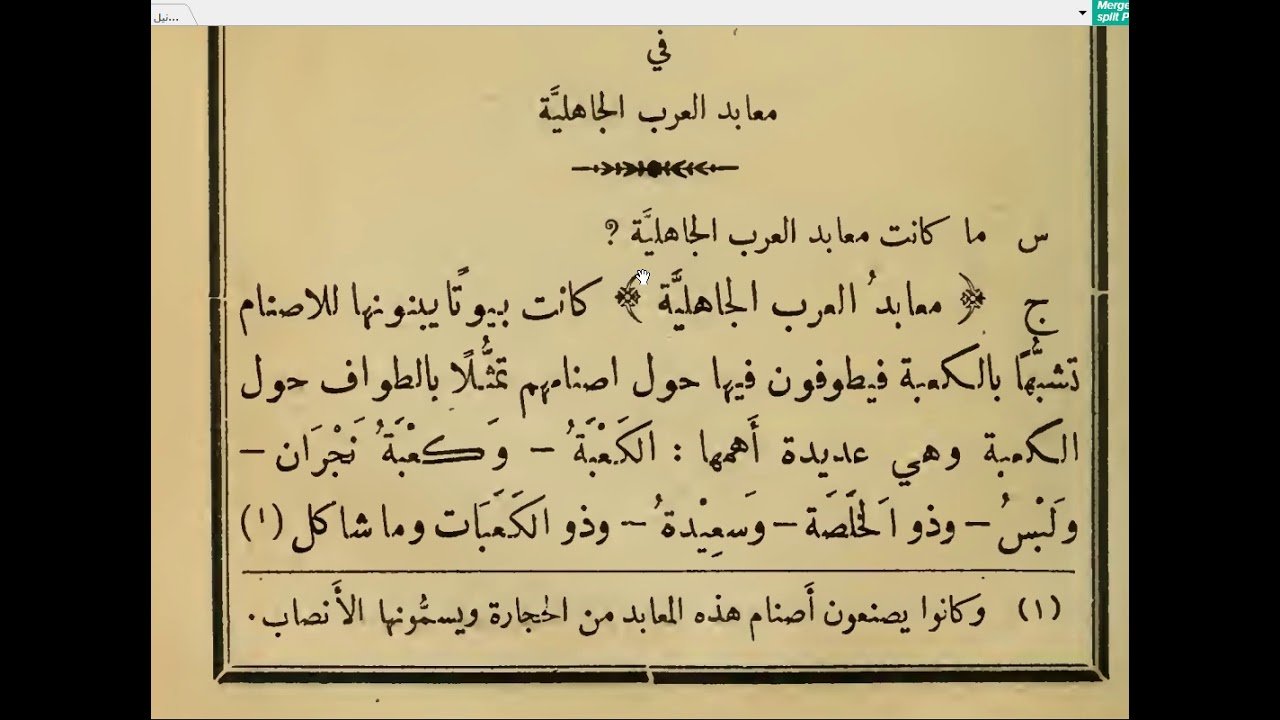 نيل...
Merge
split P
في
معابد العرب الجاهليَّة
س ما كانت معابد العرب الجاهليَّة ?
ج ﴿ معابدُ العرب الجاهليَّة ﴾ كانت بيوتًا يبنونها للاصنام
تشبُّهًا بالكعبة فيطوفون فيها حول اصنامهم تمثُّلًا بالطواف حول
الكعبة وهي عديدة أَهمها : الكَعْبَةُ – وَكَعْبَةُ نَجْرَان –
ولَبْسُ – وذو الخَلَصَة – وَسَعِيْدةُ – وذو الكَعَبَات وما شاكل (١)
(١) وكانوا يصنعون أَصنام هذه المعابد من الحجارة ويسمُّونها الأَنصاب.